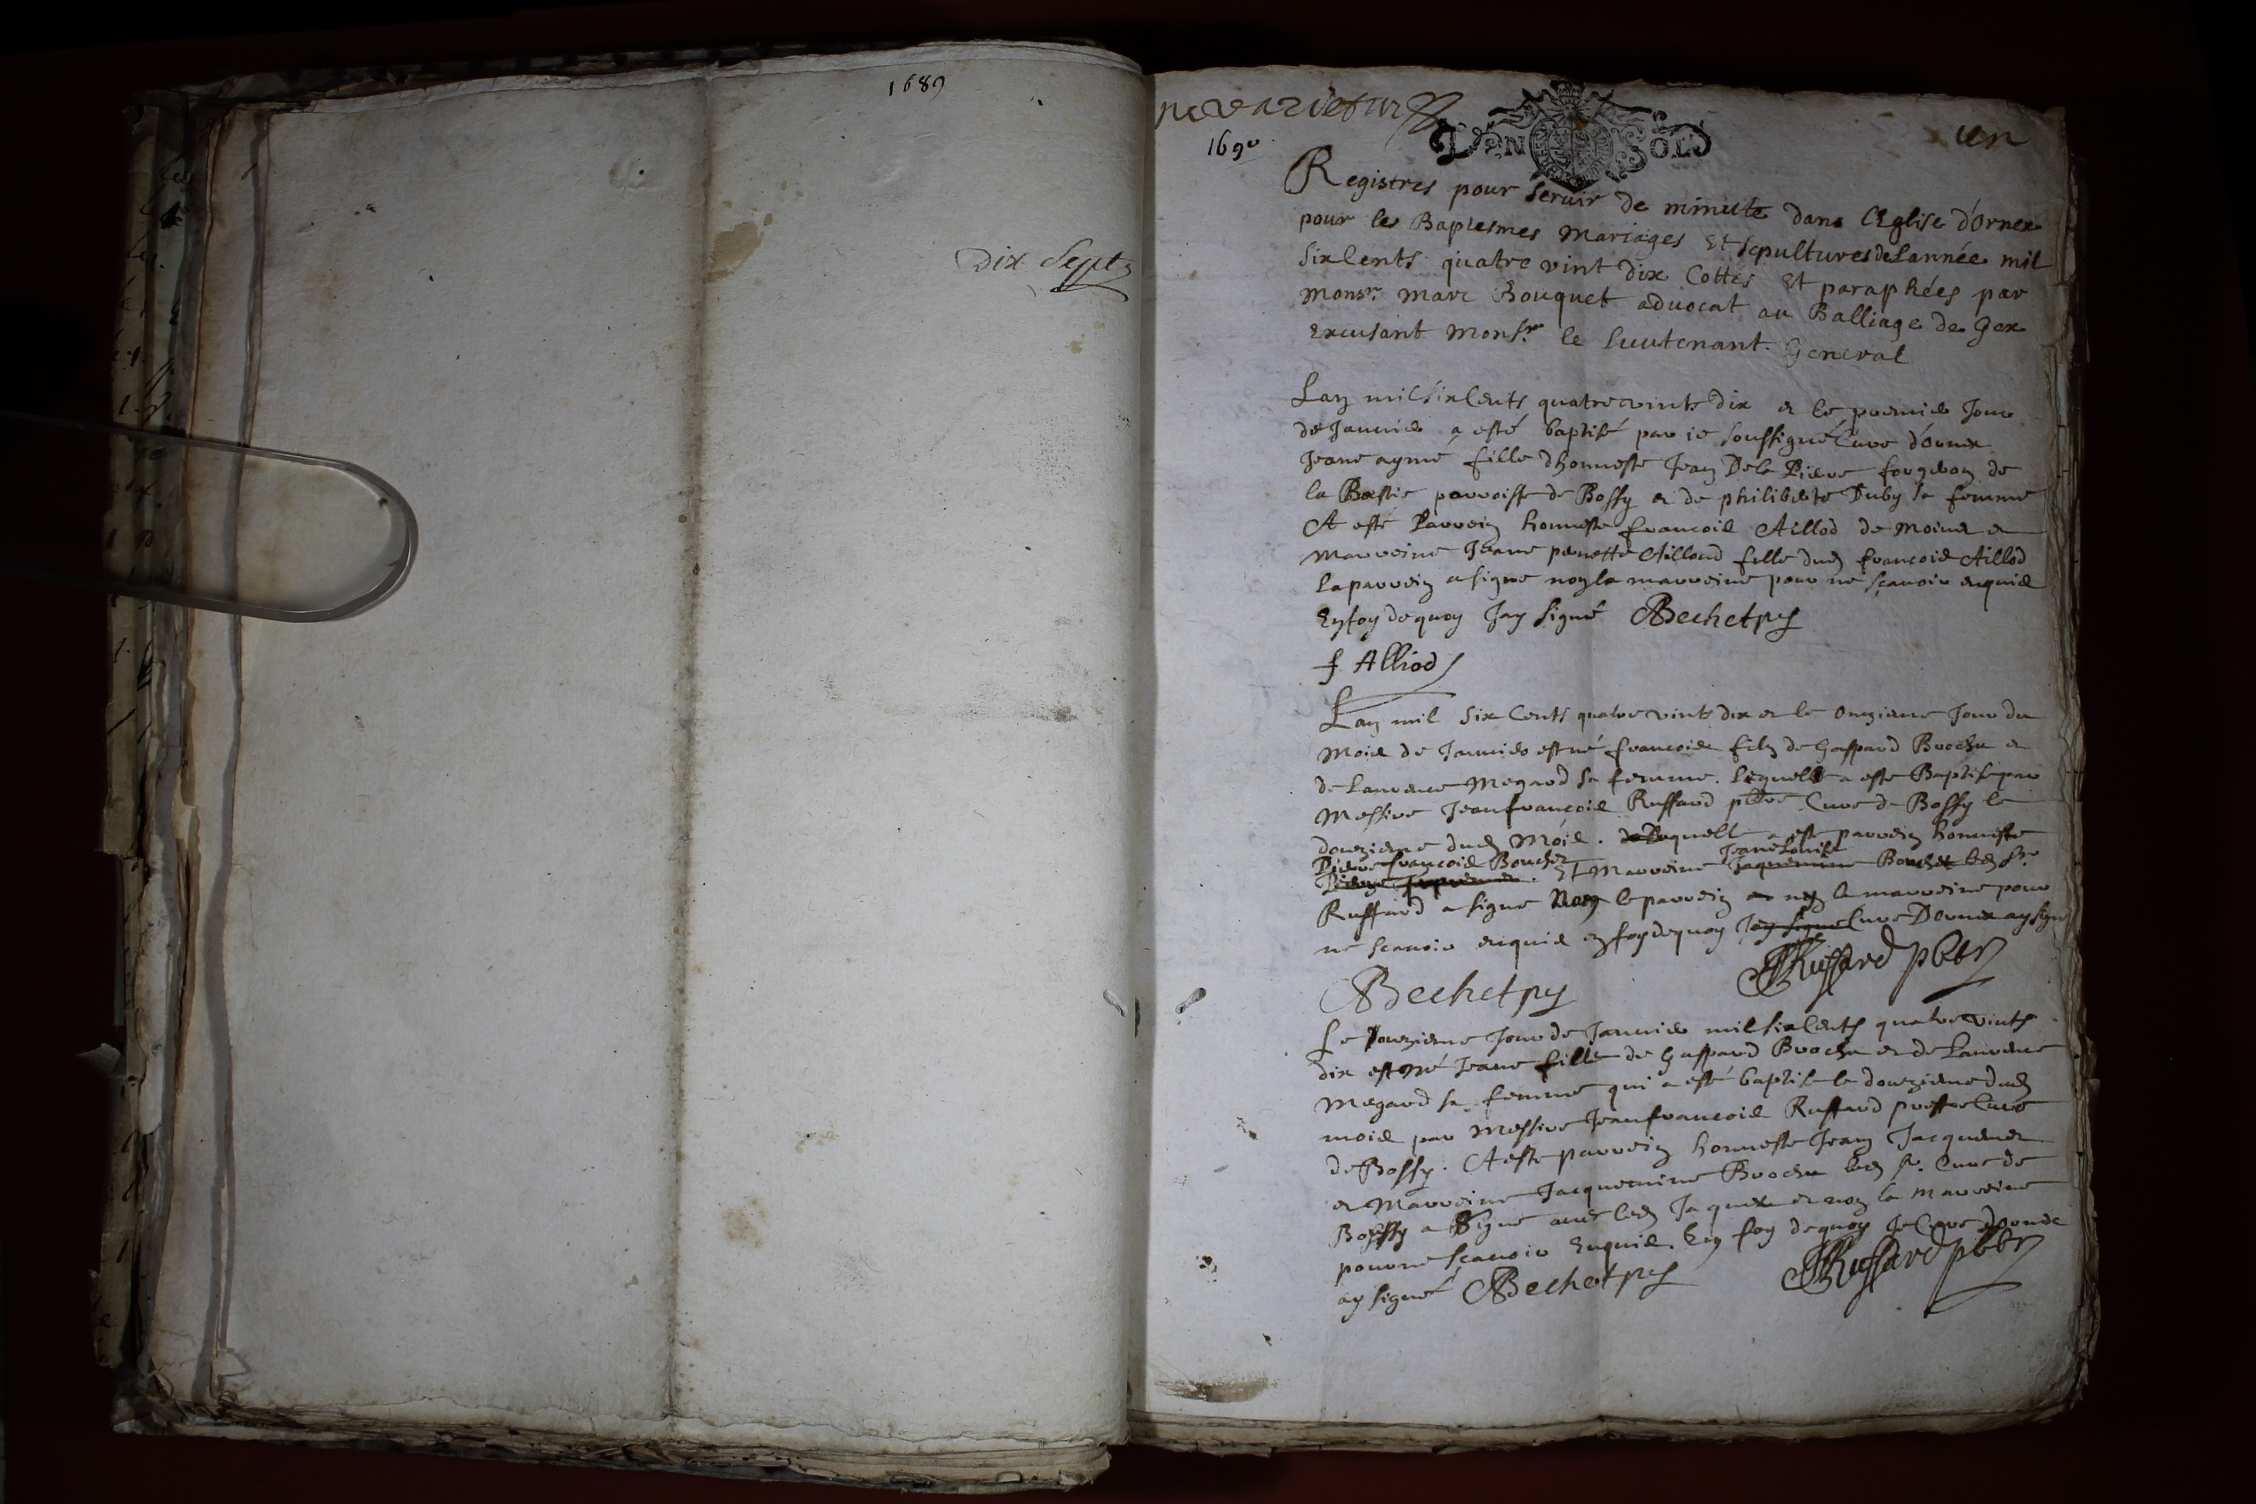 1689
Dix Sept
ne varietur
un
1690
DEN SOLS
Registres pour servir de minute dans l'Eglise d'Ornex
pour les Baptesmes Mariages Et sepultures de Lannée mil
six Cents quatre vint Dix Cottés Et paraphées par
Monsr. Marc Bouquet advocat au Balliage de Gex
Excusant Monsr. le Lieutenant General
Lan mil six Cents quatre vints Dix et le premier Jour
de Janvier a esté baptisé par ie soussigné Cure d'Ornex
Jeane aymé fille d'honneste Jean De la Pierre de
la Bastie parroisse de Bossy et de philiberte Duby sa femme
A esté Parrein honneste francois Aillod de Moine et
Marreine Jeane pernette Aillod fille dud francois Aillod
La parrein a signe non la marreine pour ne sçavoir enquis
En foy de quoy Jay signé Bechet
f Alliod
Lan mil six Cents quatre vints dix et le onzieme Jour du
Mois de Janvier est né francois fils de Gaspard Brochu et
de Laurence Megard sa femme. lequelle a este Baptise par
Messire Jean francois Ruffard pbre Cure de Bossy le
douzieme dud Mois. de Laquelle a este parrein honneste
Pierre francois Bouchez Jeane Louise
Pierre Et Marreine Jaquemine Bouchet led Sr.
Ruffard a signe Non le parrein ny la marreine pour
ne scavoir enquis en foy de quoy Jay signe Cure Dornex ay signe
Bechet JRuffard pbtr
Le Douzieme Jour de Janvier mil six Cents quatre vints
dix est né Jeane fille de Gaspard Brochu et de Laurence
Megard sa femme qui a esté baptise le douzieme dud
mois par Messire Jean francois Ruffard prestre Cure
de Bossy. A este parrein honneste Jean Jacquemet
et Marreine Jacquemine Brochu led Sr. Cure de
Bossy a Signe avec led Jaquemet et non la Marreine
pour ne sçavoir Enquis. En foy de quoy Je Cure d'Ornex
ay signé Bechet JRuffard pbtr